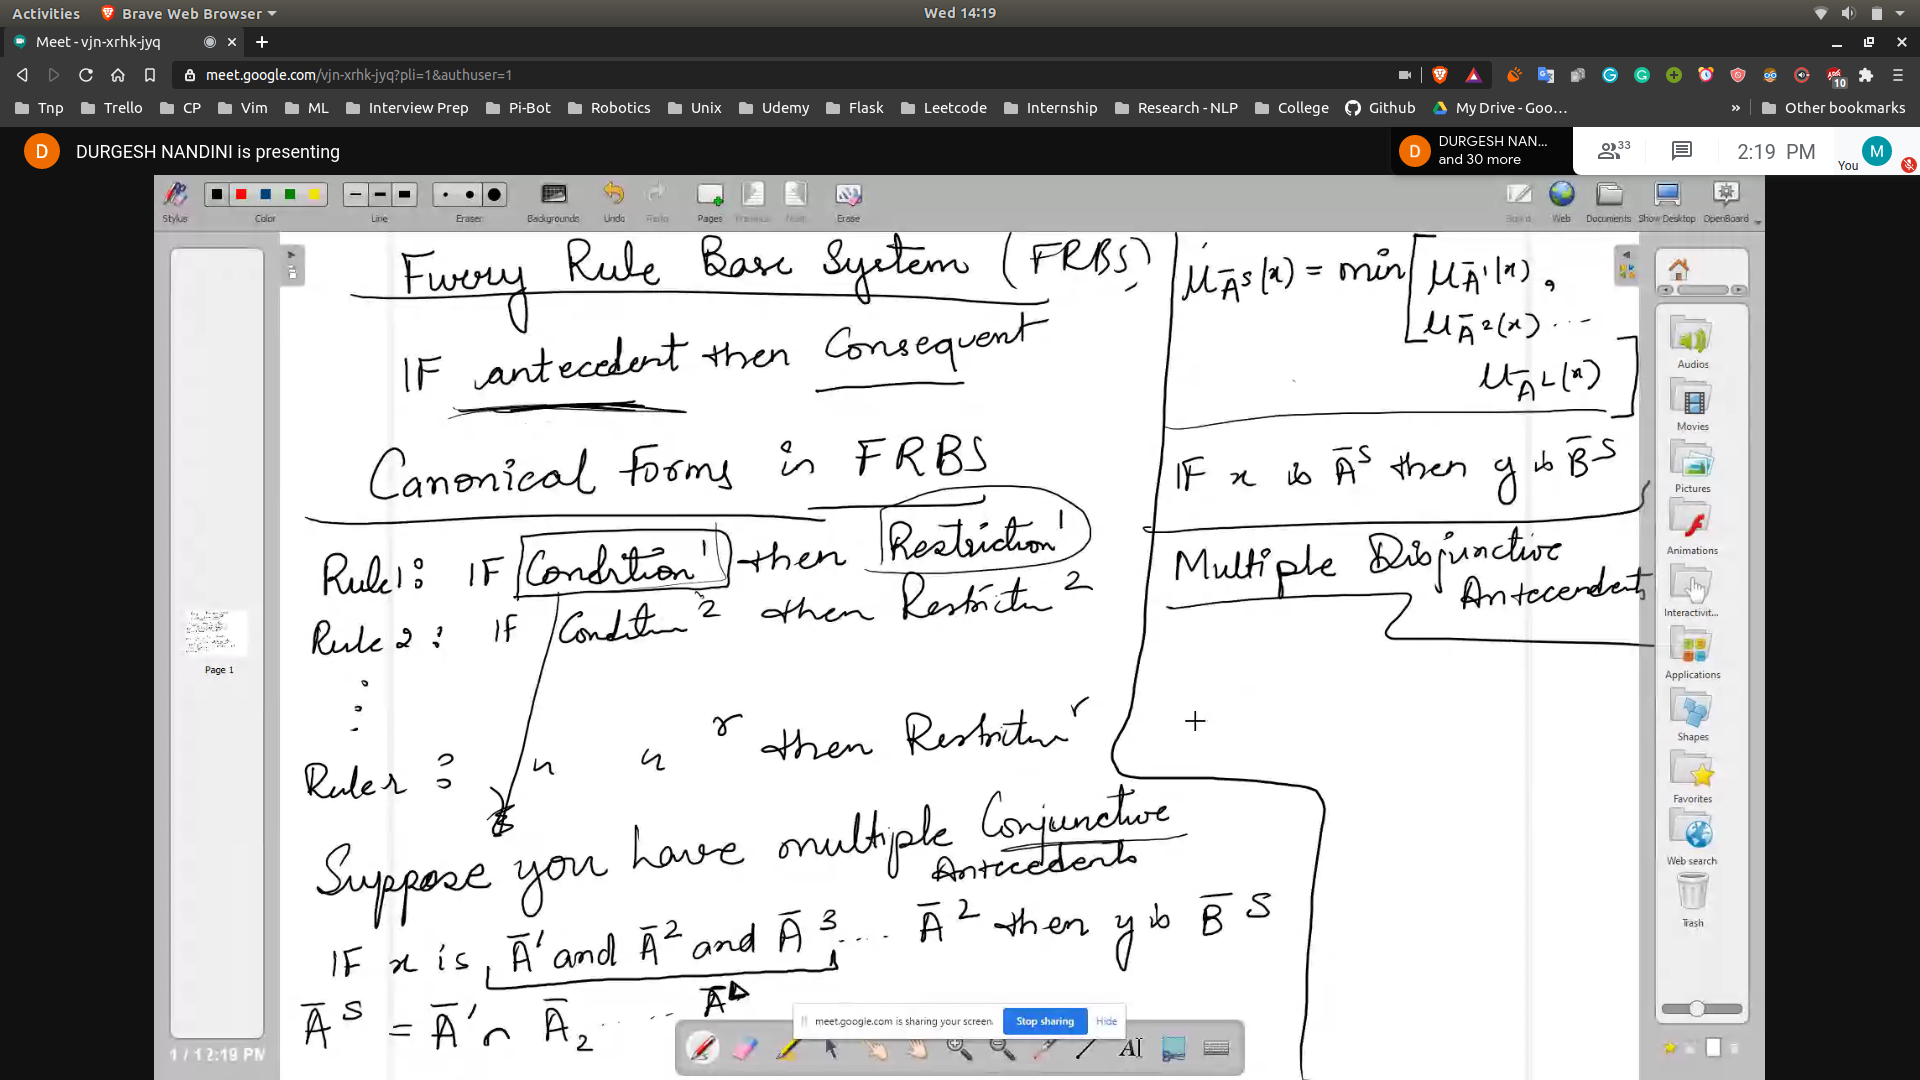 Activities
Brave Web Browser
Wed 14:19
Meet - vjn-xrhk-jyq
meet.google.com/vjn-xrhk-jyq?pli=1&authuser=1
10
Tnp
Trello
CP
Vim
ML
Interview Prep
Pi-Bot
Robotics
Unix
Udemy
Flask
Leetcode
Internship
Research - NLP
College
Github
My Drive - Goo...
»
Other bookmarks
D
DURGESH NANDINI is presenting
D
DURGESH NAN...
and 30 more
33
2:19 PM
You
M
Stylus
Color
Line
Eraser
Backgrounds
Undo
Redo
Pages
Previous
Next
Erase
Board
Web
Documents
Show Desktop
OpenBoard
Page 1
1 / 1
2:19 PM
Fuzzy Rule Base System (FRBS)
IF antecedent then Consequent
Canonical Forms in FRBS
Rule 1 : IF Condition 1 then Restriction 1
Rule 2 : IF Condition 2 then Restriction 2
Rule r : " " r then Restriction r
Suppose you have multiple Conjunctive
Antecedents
IF x is A̅¹ and A̅² and A̅³ .... A̅² then y is B̅ˢ
A̅ˢ = A̅¹ ∩ A̅₂ ..... A̅ᴸ
μA̅ˢ(x) = min [ μA̅¹(x) ,
μA̅²(x) ...
μA̅ᴸ(x) ]
IF x is A̅ˢ then y is B̅ˢ
Multiple Disjunctive
Antecendents
Audios
Movies
Pictures
Animations
Interactivit...
Applications
Shapes
Favorites
Web search
Trash
meet.google.com is sharing your screen.
Stop sharing
Hide
AI